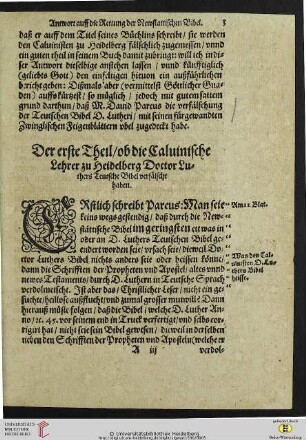 Antwort auff die Rettung der Newstattischen Bibel. 3
daß er auff dem Titel seines Büchlins schreibt/ sie werden
den Caluinisten zu Heidelberg fälschlich zugemessen/ vnnd
ein guten theil in seinem Buch damit zubringt: will ich in di-
ser Antwort dieselbige anstehen lassen/ vnnd künfftiglich
(geliebts Gott) den einfältigen hieuon ein außführlichen
bericht geben: Dißmals aber (vermittelst Göttlicher Gna-
den) auff kürtzest/ so müglich/ jedoch mit gutem sattem
grund darthun/ daß M. Dauid Pareus die verfälschung
der Teutschen Bibel D. Lutheri/ mit seinen fürgewandten
Zwinglischen Feigenblättern vbel zugedeckt habe.
Der erste Theil/ ob die Caluinische
Lehrer zu Heidelberg Doctor Lu-
thers Teutsche Bibel verfälscht
haben.
ERstlich schreibt Pareus: Man seie
keins wegs gestendig/ daß durch die New-
stättische Bibel im geringsten etwas in
oder an D. Luthers Teutschen Bibel ge-
endert worden seie/ vrsach/ seie/ dieweil Do-
ctor Luthers Bibel nichts anders seie oder heissen könne/
dann die Schrifften der Propheten vnd Apostel/ altes vnnd
newes Testaments/ durch D. Luthern in Teutsche Sprach
verdolmetscht. Ist aber das/ Christlicher Leser/ nicht ein ge-
suchte/ heillose außflucht/ vnd zumal grosser mutwill? Dann
herauß müste folgen/ daß die Bibel/ welche D. Luther An-
no/ etc. 45. vor seinem end in Truck verfertigt/ vnd selbs cor-
rigirt hat/ nicht seie sein Bibel gewesen/ dieweil in derselben
neben den Schrifften der Propheten vnd Aposteln/ welche er
Am 11. Blat.
Was den Cal-
uinisten D. Lu-
thers Bibel
heisse.
A iij verdol-
UNIVERSITÄTS-
BIBLIOTHEK
HEIDELBERG
© Universitätsbibliothek Heidelberg
gefördert durch
Baden-Württemberg